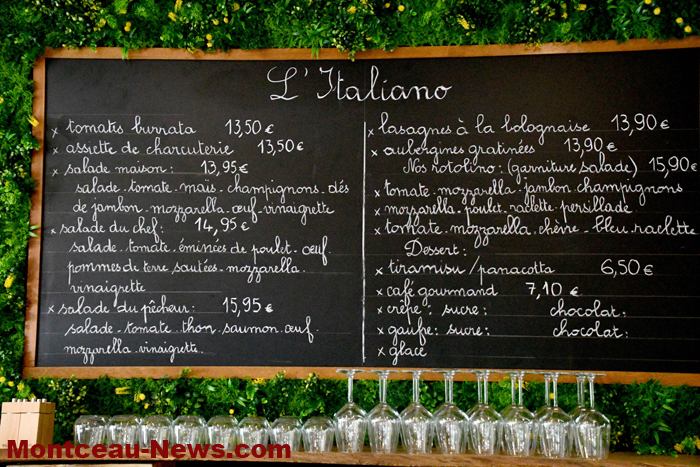 L'Italiano
x tomates burrata 13,50 €
x assiette de charcuterie 13,50 €
x salade maison: 13,95 €
salade. tomate. maïs. champignons. dés
de jambon. mozzarella. œuf. vinaigrette
x salade du chef: 14,95 €
salade. tomate. émincées de poulet. œuf
pommes de terre sautées. mozzarella.
vinaigrette
x salade du pêcheur: 15,95 €
salade. tomate. thon. saumon. œuf.
mozzarella. vinaigrette.
x lasagnes à la bolognaise 13,90 €
x aubergines gratinées 13,90 €
Nos rotolino: (garniture salade) 15,90 €
x tomate. mozzarella. jambon. champignons
x mozzarella. poulet. raclette. persillade.
x tomate. mozzarella. chèvre. bleu. raclette
Dessert:
x tiramisu/panacotta 6,50 €
x café gourmand 7,10 €
x crêpe: sucre: chocolat:
x gaufre: sucre: chocolat:
x glace
Montceau-News.com